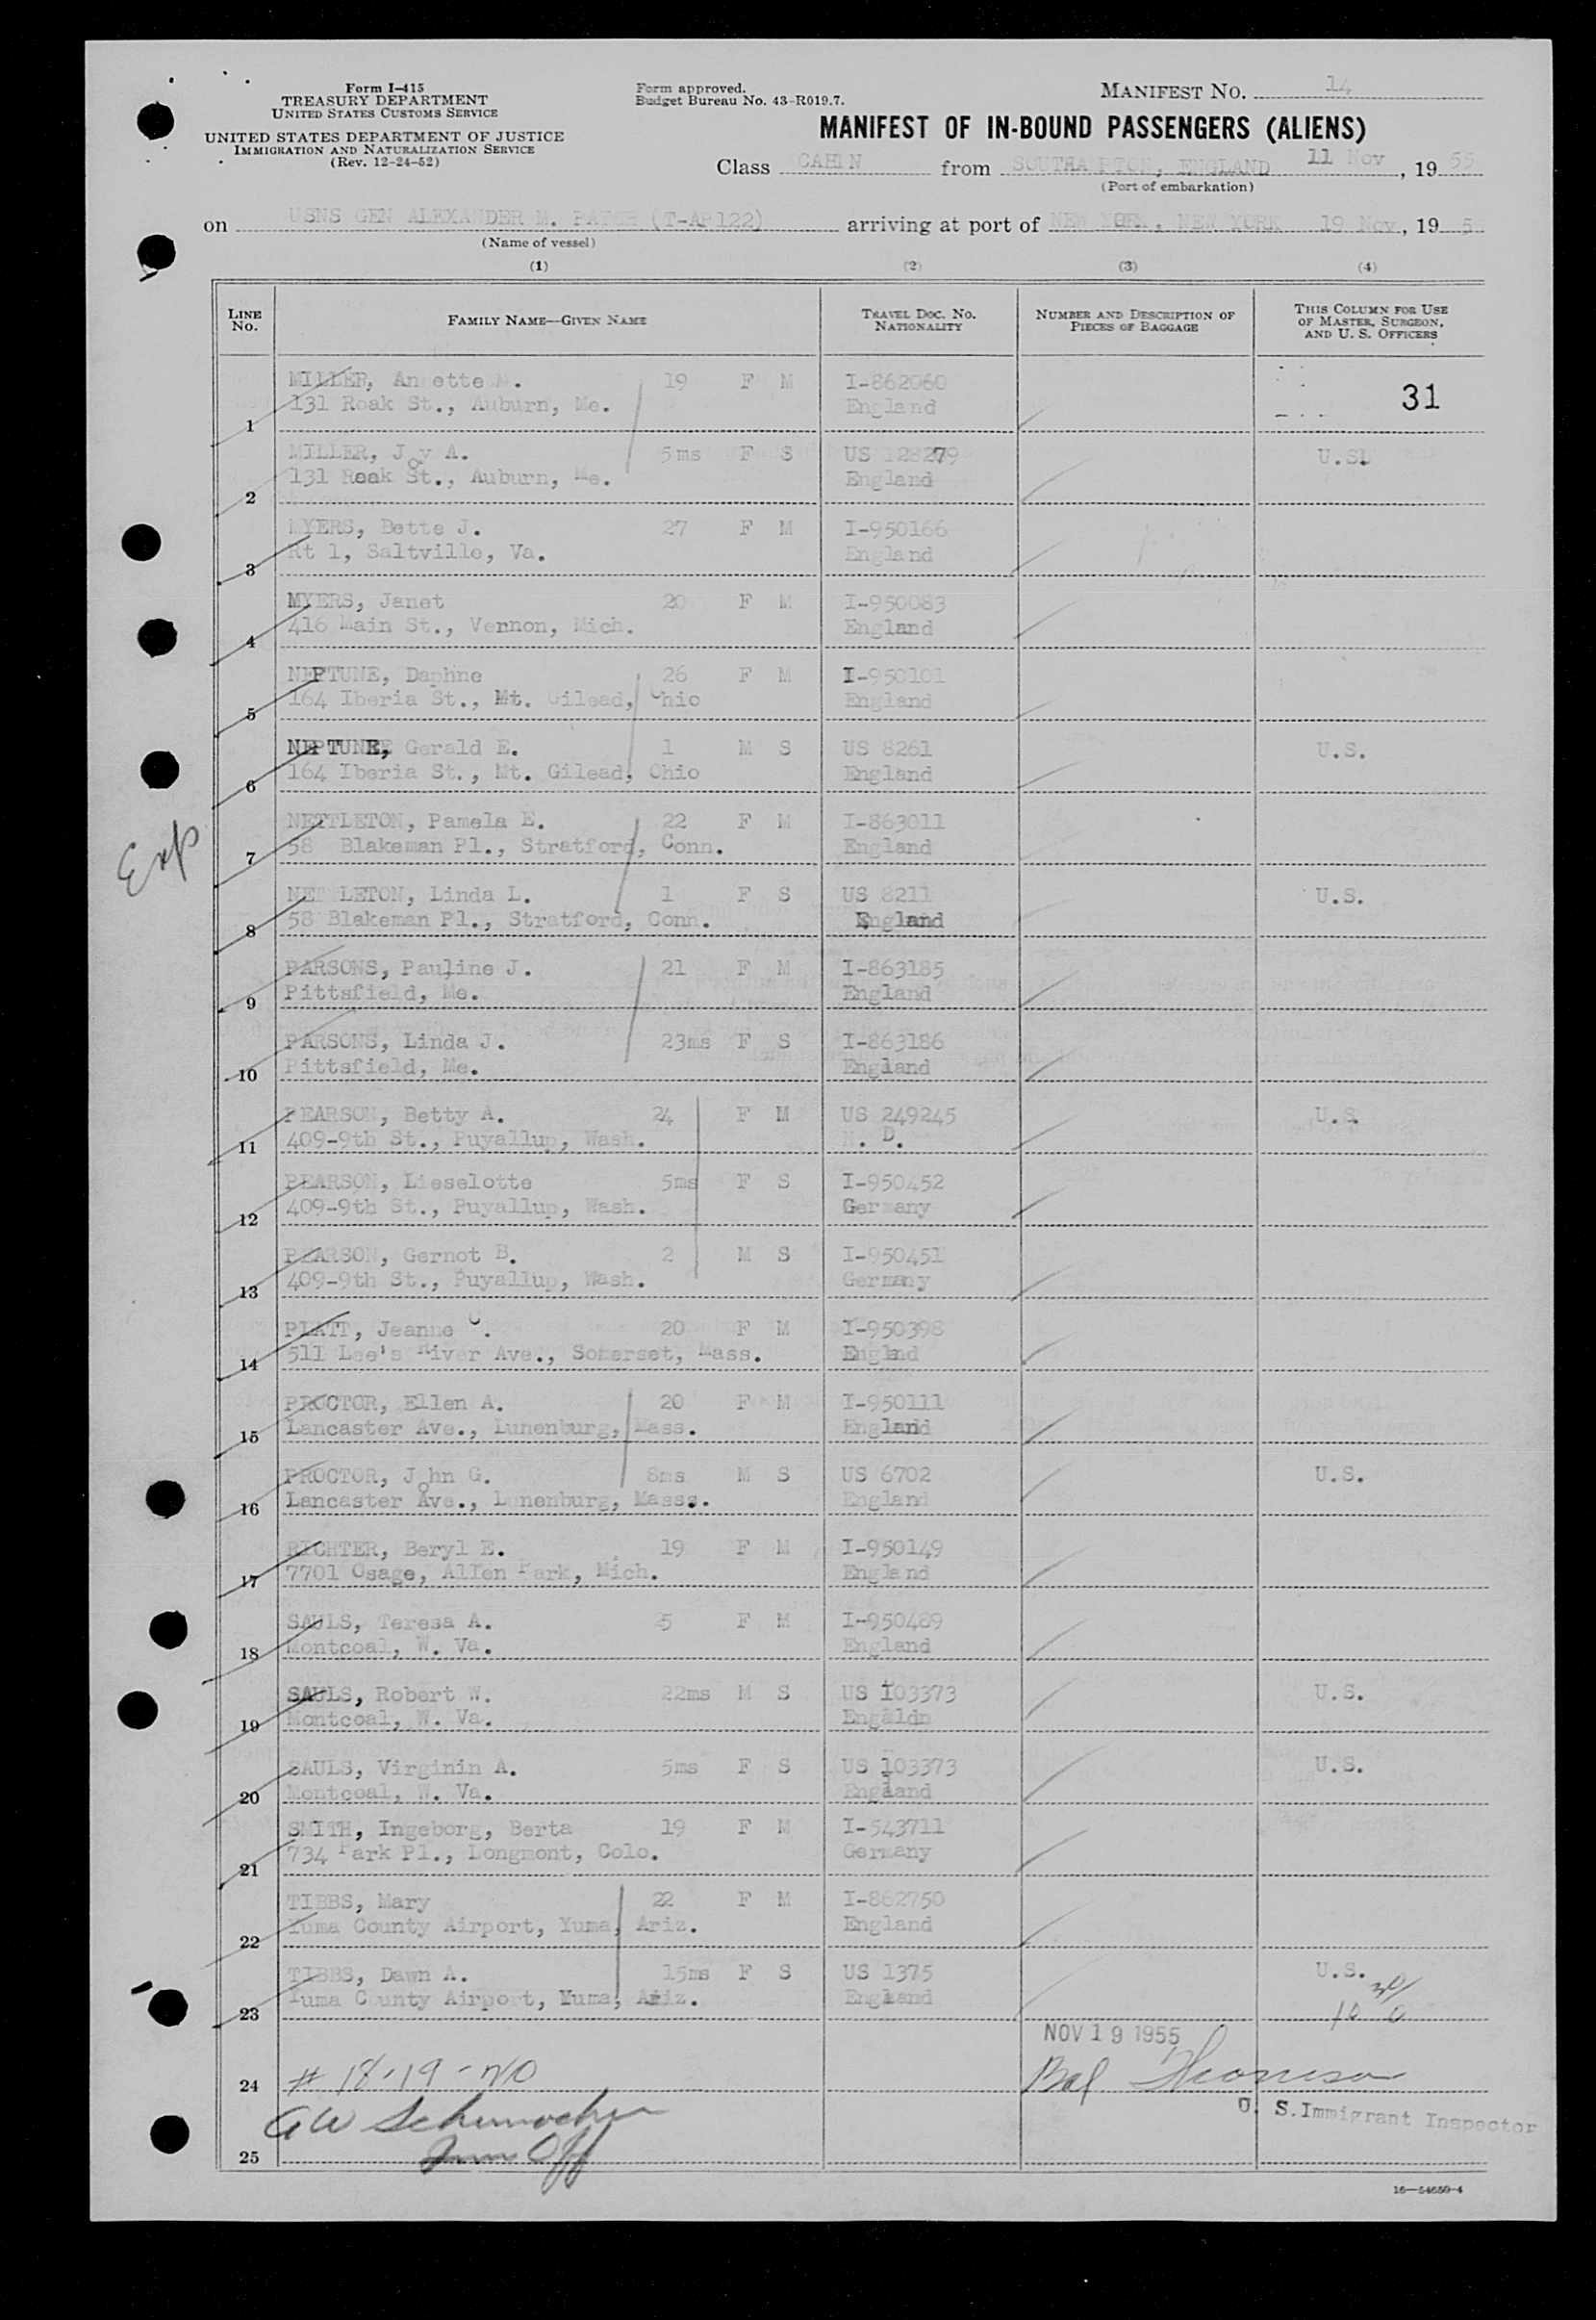 Form I-415
TREASURY DEPARTMENT
UNITED STATES CUSTOMS SERVICE
UNITED STATES DEPARTMENT OF JUSTICE
IMMIGRATION AND NATURALIZATION SERVICE
(Rev. 12-24-52)
Form approved.
Budget Bureau No. 43-R019.7.
MANIFEST NO. 14
MANIFEST OF IN-BOUND PASSENGERS (ALIENS)
Class CABIN from SOUTHA PTON, ENGLAND 11 Nov, 19 55
(Port of embarkation)
on USNS GEN ALEXANDER M. PATCH (T-AP122) arriving at port of NEW YORK, NEW YORK 19 Nov, 19 55
(Name of vessel)
(1) (2) (3) (4)
LINE NO. FAMILY NAME—GIVEN NAME TRAVEL DOC. NO. NATIONALITY NUMBER AND DESCRIPTION OF PIECES OF BAGGAGE THIS COLUMN FOR USE OF MASTER, SURGEON, AND U. S. OFFICERS
MILLER, An ette M. 19 F M I-862060 31
1 131 Roak St., Auburn, Me. England
MILLER, Joy A. 5ms F S US 128279 U.S.
2 131 Roak St., Auburn, Me. England
MYERS, Bette J. 27 F M I-950166
3 Rt 1, Saltville, Va. England
MYERS, Janet 20 F M I-950083
4 416 Main St., Vernon, Mich. England
NEPTUNE, Daphne 26 F M I-950101
5 164 Iberia St., Mt. Gilead, Ohio England
NEPTUNE, Gerald E. 1 M S US 8261 U.S.
6 164 Iberia St., Mt. Gilead, Ohio England
NETTLETON, Pamela E. 22 F M I-863011
7 58 Blakeman Pl., Stratford, Conn. England
Exp
NET LETON, Linda L. 1 F S US 8211 U.S.
8 58 Blakeman Pl., Stratford, Conn. England
PARSONS, Pauline J. 21 F M I-863185
9 Pittsfield, Me. England
PARSONS, Linda J. 23ms F S I-863186
10 Pittsfield, Me. England
PEARSON, Betty A. 24 F M US 249245 U.S.
11 409-9th St., Puyallup, Wash. N. D.
PEARSON, Lieselotte 5ms F S I-950452
12 409-9th St., Puyallup, Wash. Germany
PEARSON, Gernot B. 2 M S I-950451
13 409-9th St., Puyallup, Wash. Germany
PLATT, Jeanne C. 20 F M I-950398
14 511 Lee's River Ave., Somerset, Mass. England
PROCTOR, Ellen A. 20 F M I-950111
15 Lancaster Ave., Lunenburg, Mass. England
PROCTOR, John G. 8ms M S US 6702 U.S.
16 Lancaster Ave., Lunenburg, Masss. England
RICHTER, Beryl E. 19 F M I-950149
17 7701 Osage, Allen Park, Mich. England
SAULS, Teresa A. 5 F M I-950489
18 Montcoal, W. Va. England
SAULS, Robert W. 22ms M S US 103373 U.S.
19 Montcoal, W. Va. Engaldn
SAULS, Virginin A. 5ms F S US 103373 U.S.
20 Montcoal, W. Va. England
SMITH, Ingeborg, Berta 19 F M I-543711
21 734 Park Pl., Longmont, Colo. Germany
TIBBS, Mary 22 F M I-862750
22 Yuma County Airport, Yuma, Ariz. England
TIBBS, Dawn A. 15ms F S US 1375 U.S.
23 Yuma County Airport, Yuma, Ariz. England
NOV 19 1955
24 # 18-19-NO
U. S. Immigrant Inspector
GW Schumacher
25 Imm Off
16—54650-4